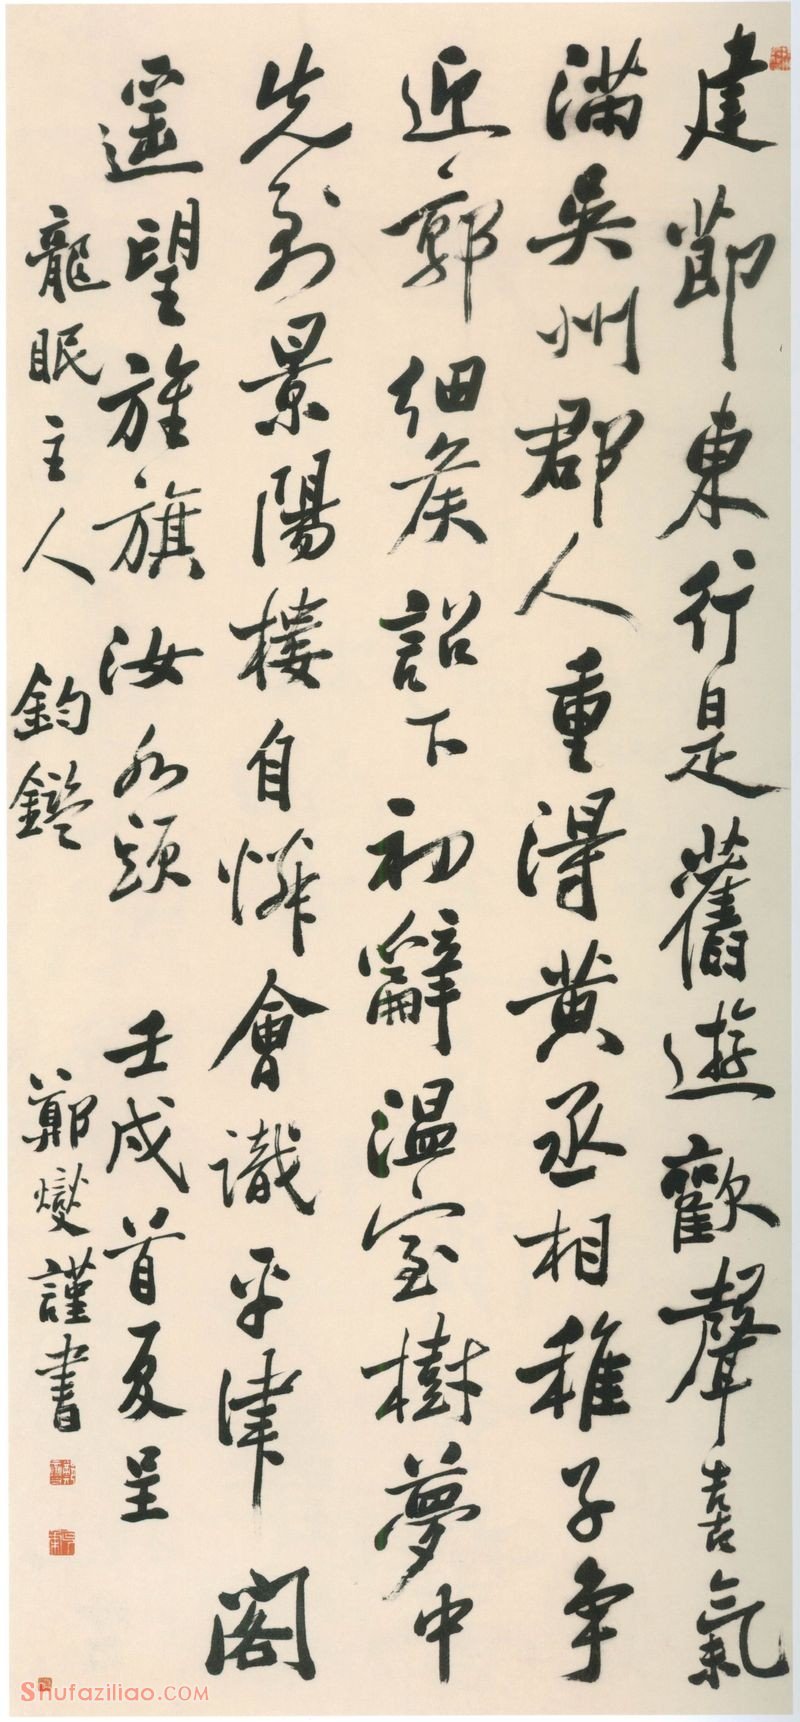 建節東行是舊遊歡聲喜氣
滿吳州郡人重得黃丞相稚子爭
近郭細侯詔下初辭温室樹夢中
先到景陽樓自憐曾識平津閣
遥望旌旗汝水頭 壬戌首夏呈
龍眠主人 鈞鑑 鄭燮謹書
Shufaziliao.COM